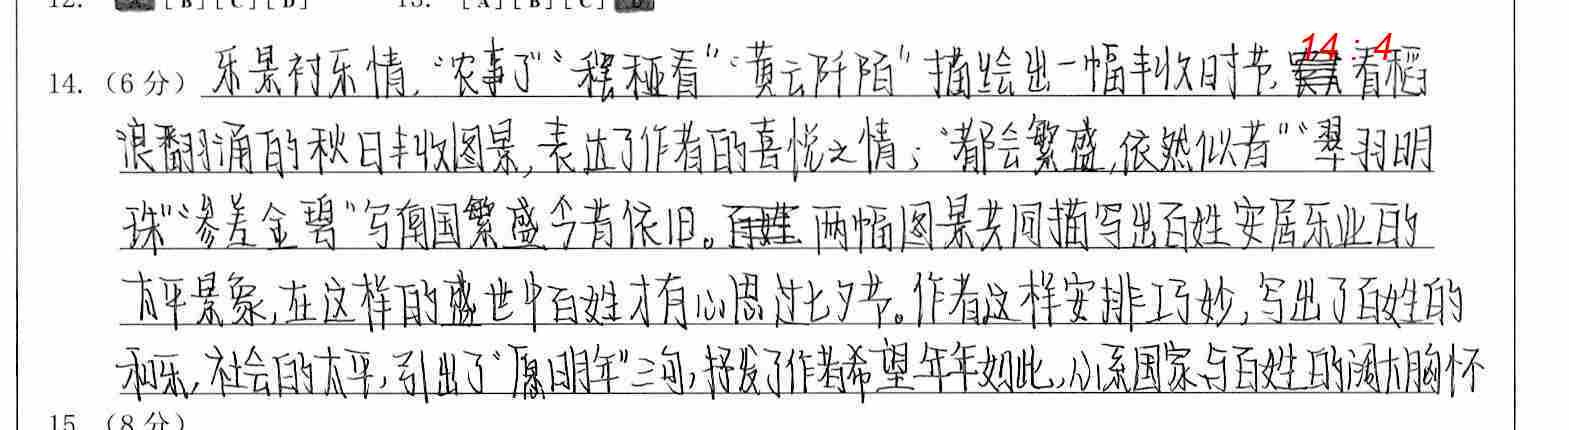 12. [A] [B] [C] [D] 13. [A] [B] [C] [D]
14:4
14. (6分) 乐景衬乐情,“农事了”“䆉稏看”“黄云阡陌”描绘出一幅丰收时节,看稻
浪翻涌的秋日丰收图景,表达了作者的喜悦之情;“都会繁盛,依然似昔”“翠羽明
珠”“参差金碧”写南国繁盛今昔依旧。两幅图景共同描写出百姓安居乐业的
太平景象,在这样的盛世中百姓才有心思过七夕节。作者这样安排巧妙,写出了百姓的
和乐,社会的太平,引出了“愿明年”三句,抒发了作者希望年年如此,心系国家与百姓的阔大胸怀
15. (8分)